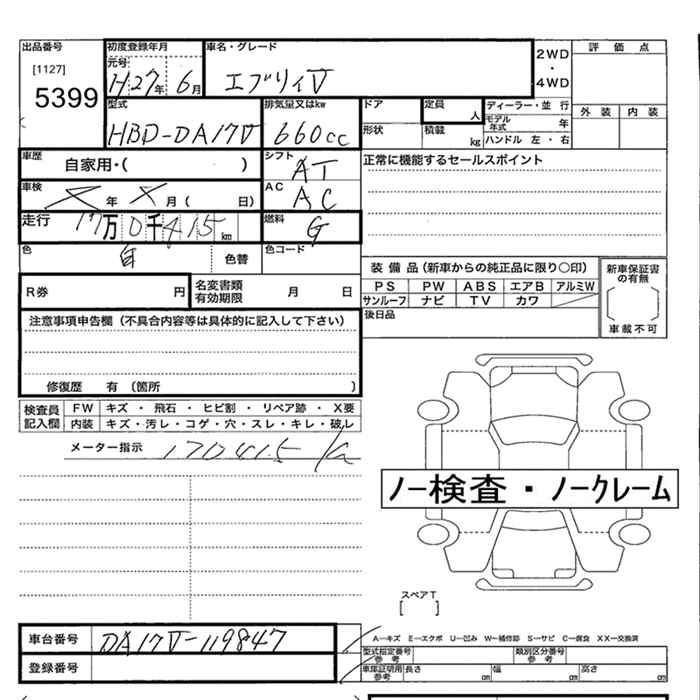 出品番号
[1127]
5399
初度登録年月
元号
H27年 6月
車名・グレード
エブリイV
2WD
・
4WD
評価点
外装 内装
型式
HBD-DA17V
排気量又はkw
660cc
ドア
定員
人
ディーラー・並 行
モデル年式 年
形状
積載
kg
ハンドル 左・右
車歴
自家用・( )
シフト
AT
正常に機能するセールスポイント
車検
年 月( 日)
AC
AC
走行
17万0千415km
燃料
G
色
白
色替
色コード
装 備 品(新車からの純正品に限り〇印)
PS PW ABS エアB アルミW
サンルーフ ナビ TV カワ
新車保証書の有無
車載不可
R券 円
名変書類有効期限
月 日
後日品
注意事項申告欄(不具合内容等は具体的に記入して下さい)
修復歴 有(箇所 )
検査員記入欄
FW キズ ・ 飛石 ・ ヒビ割 ・ リペア跡 ・ X要
内装 キズ・汚レ・コゲ・穴・スレ・キレ・破レ
メーター指示 170415
ノー検査・ノークレーム
スペアT
[ ]
車台番号 DA17V-119847
登録番号
A-キズ E-エクボ U-凹み W-補修跡 S-サビ C-腐食 XX-交換済
型式指定番号参考
類別区分番号参考
車庫証明用参考 長さ cm 幅 cm 高さ cm